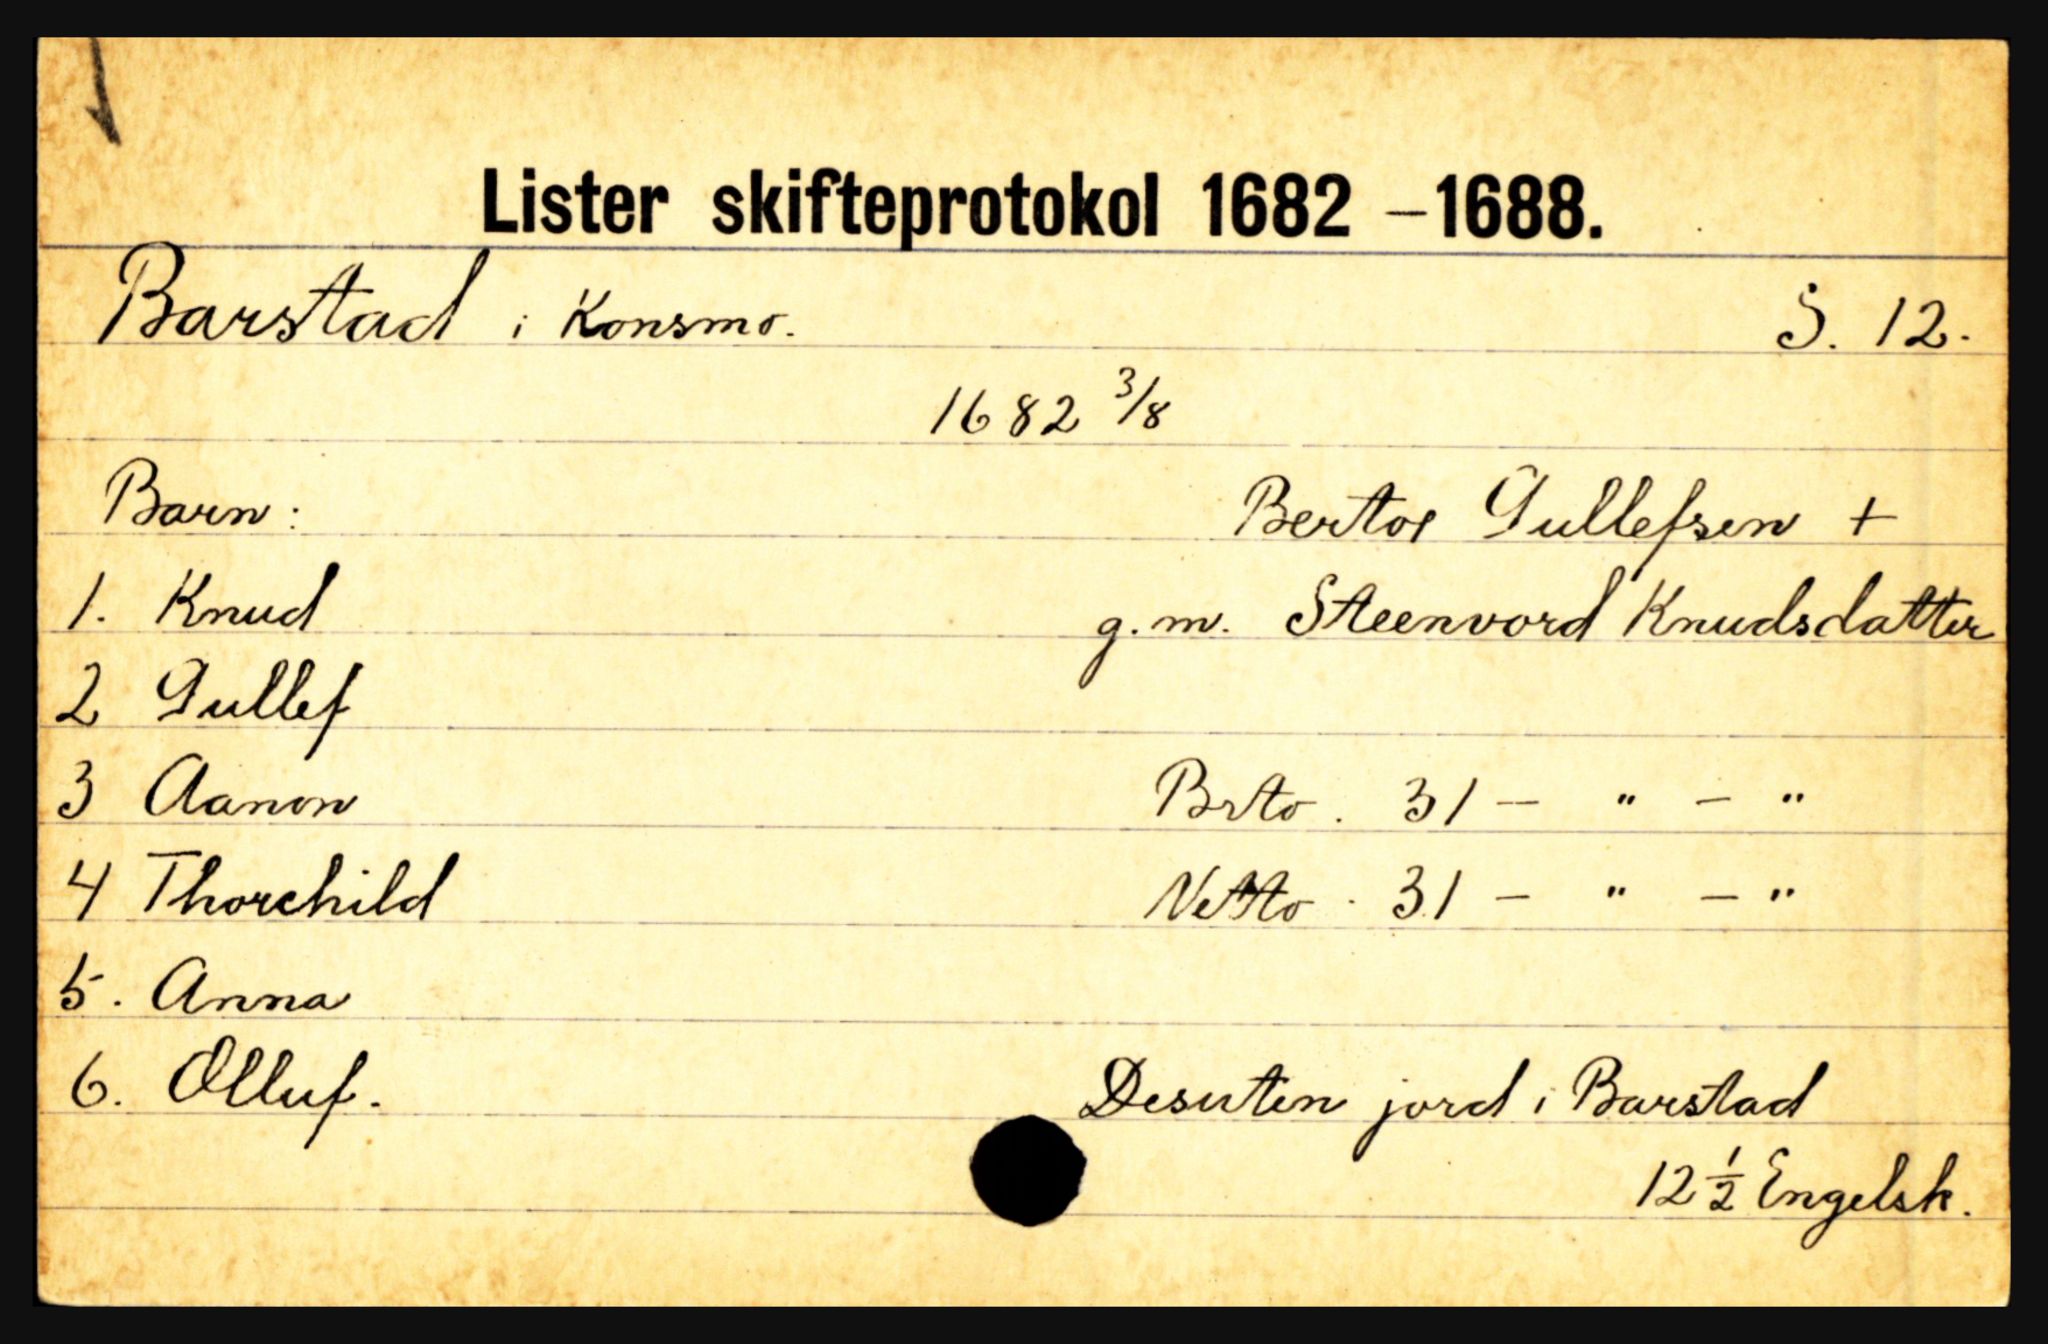 Lister skifteprotokol 1682 – 1688.
Barstad i Konsmo. S. 12.
1682 3/8
Barn: Bertor Gullefsen +
1. Knud g. m. Steenvord Knudsdatter
2 Gullef
3 Aanon Brto. 31 – " – "
4 Thorchild Netto. 31 – " – "
5. Anna
6. Olluf. Desuten jord i Barstad
12 1/2 Engelsk.